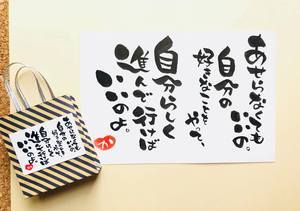 あせらなくても
いいの。
自分の
好きなことを
やって、
自分らしく
進んで行けば
いいのよ。
か
あせらなくても
いいの。
自分の
好きなことを
やって、
自分らしく
進んで行けば
いいのよ。